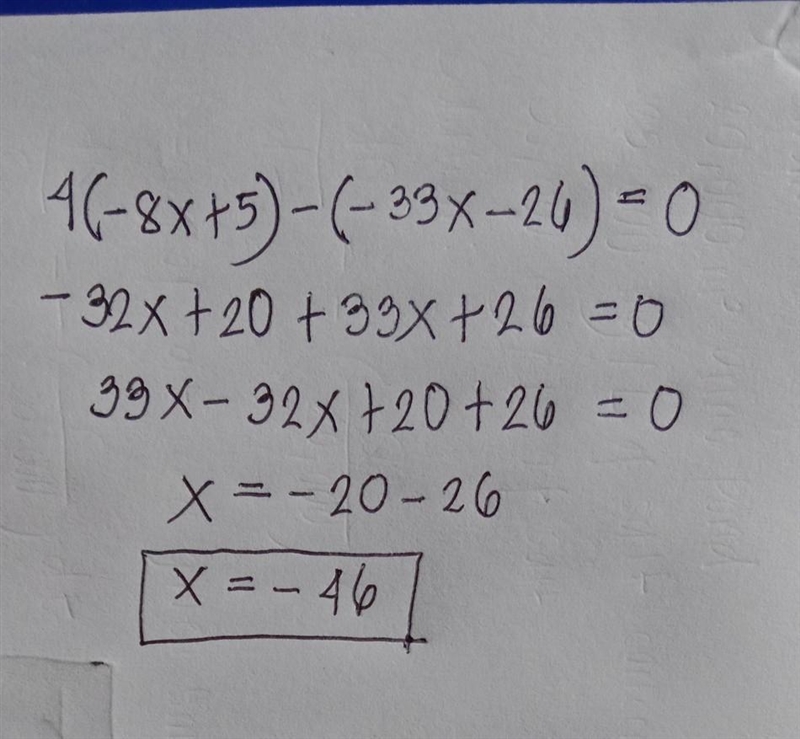 4(-8x+5)-(-33x-26)=0
-32x+20+33x+26=0
33x-32x+20+26=0
x=-20-26
x=-46